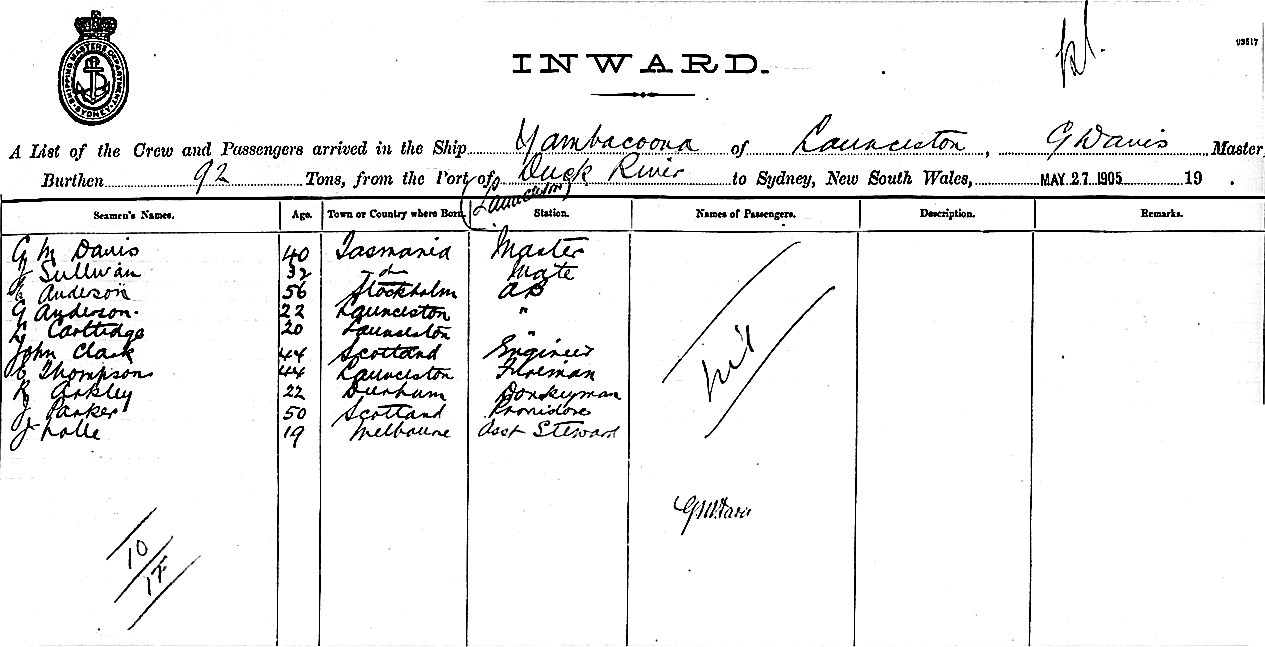 SHIPPING MASTERS DEPARTMENT SYDNEY
93517
INWARD.
A List of the Crew and Passengers arrived in the Ship Yambacoona of Launceston, G Davis Master
Burthen 92 Tons, from the Port of Duck River to Sydney, New South Wales, MAY 27 1905 19 .
(Launceston)
Seamen's Names. Age. Town or Country where Born Station. Names of Passengers. Description. Remarks.
G M Davis 40 Tasmania Master
J Sullivan 32 do Mate
Anderson 56 Stockholm AB
G Anderson. 22 Launceston "
Cartledge 20 Launceston "
John Clark 44 Scotland Engineer
Thompson 44 Launceston Fireman
R Arkley 22 Durham Donkeyman
J Parker 50 Scotland Providore
J 19 Melbourne Asst Steward
Nil
10
1F